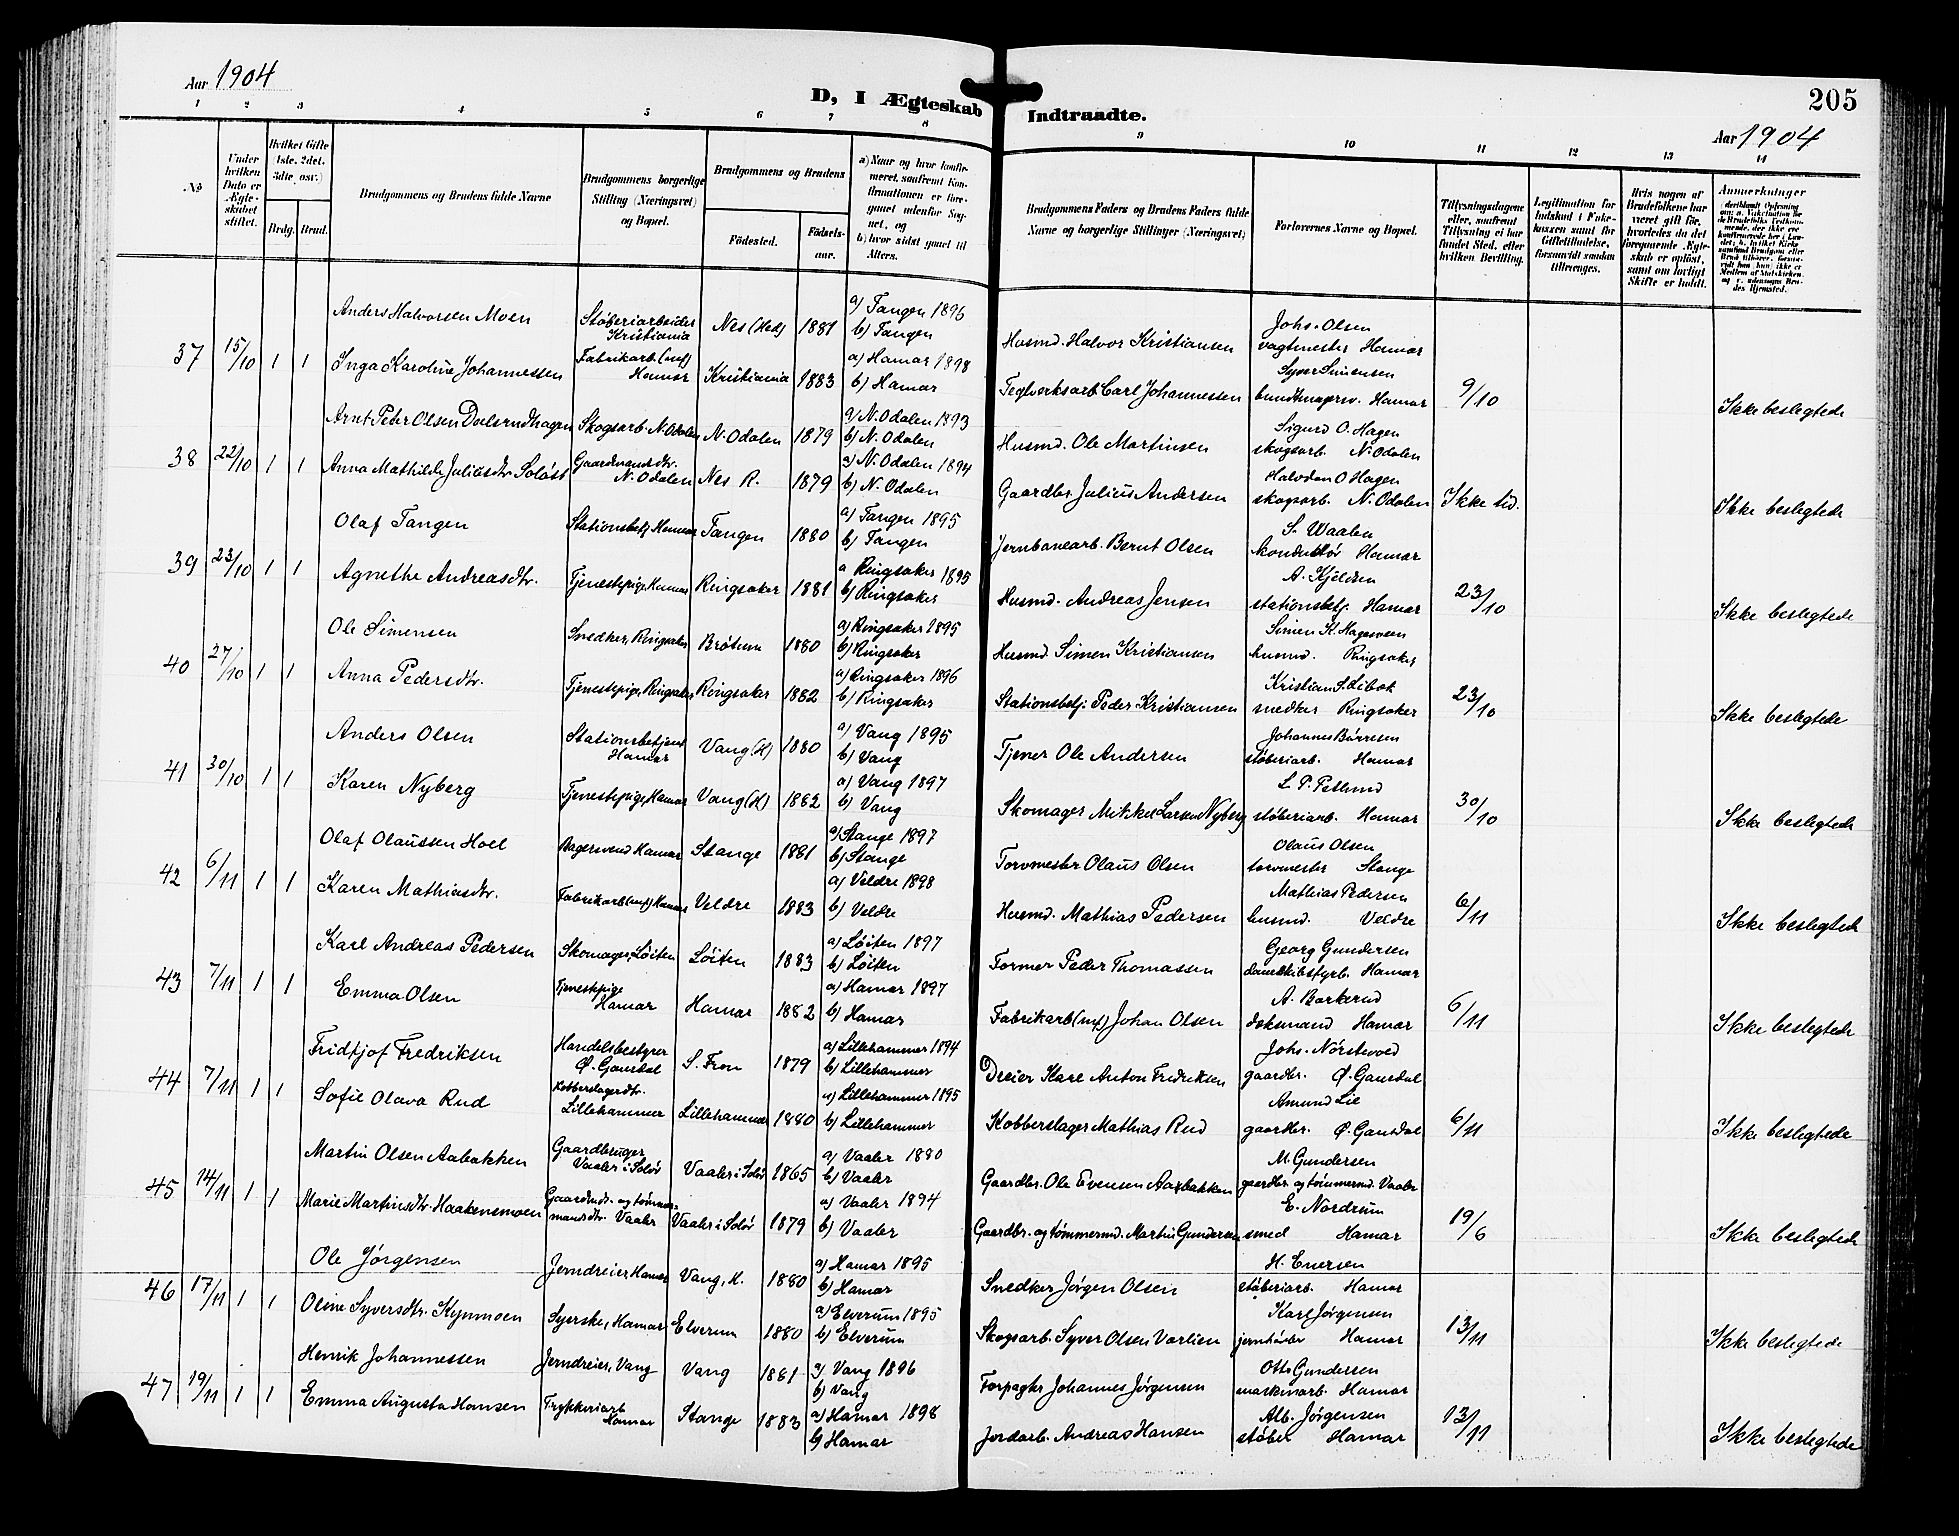 Aar 1904
D, I Ægteskab Indtraadte.
205
Aar 1904
1 2 3 4 5 6 7 8 9 10 11 12 13 14
No
Under hvilken Dato er Ægteskabet stiftet.
Hvilket Gifte (1ste, 2det, 3die, osv.)
Brdg. Brud.
Brudgommens og Brudens fulde Navne
Brudgommens borgerlige Stilling (Næringsvei) og Bopæl.
Brudgommens og Brudens
Fødested.
Fødselsaar.
a) Naar og hvor konfirmeret, saafremt Konfirmationen er foregaaet udenfor Sognet, og
b) hvor sidst gaaet til Alters.
Brudgommens Faders og Brudens Faders fulde Navne og borgerlige Stillinger (Næringsvei)
Forlovernes Navne og Bopæl.
Tillysningsdagene eller, saafremt Tillysning ei har fundet Sted, efter hvilken Bevilling.
Legitimation for Indskud i Enkekassen samt for Giftetilladelse, forsaavidt saadan tiltrænges.
Hvis nogen af Brudefolkene har været gift før, hvorledes da det foregaaende Ægteskab er opløst, samt om lovligt Skifte er holdt.
Anmerkninger
37 15/10 1 1
Anders Halvorsen Moen Støberiarbeider Kristiania Nes (Hed) 1881 a) Tangen 1896 b) Tangen Husmd. Halvor Kristiansen Johs. Olsen vagtmester Hamar
Inga Karoline Johannessen Fabrikarb. (ugf) Hamar Kristiania 1883 a) Hamar 1898 b) Hamar Teglverksarb. Carl Johannessen Syver Simensen bundtmagersv. Hamar 9/10 Ikke beslegtede
38 22/10 1 1
Arnt Peter Olsen Dalsrudhagen Skogsarb. N. Odalen N. Odalen 1879 a) N. Odalen 1893 b) N. Odalen Husmd. Ole Martinsen Sigurd O. Hagen skogsarb. N. Odalen
Anna Mathilde Juliusdtr. Soløst Gaardmandsdtr. N. Odalen Nes R. 1879 a) N. Odalen 1894 b) N. Odalen Gaardbr. Julius Andersen Halvdan O Hagen skogarb. N. Odalen Ikke tid. Ikke beslegtede
39 23/10 1 1
Olaf Tangen Stationsbetj. Hamar Tangen 1880 a) Tangen 1895 b) Tangen Jernbanearb. Bernt Olsen S. Waalen konduktør Hamar
Agnethe Andreasdtr. Tjenestepige, Hamar Ringsaker 1881 a Ringsaker 1895 b) Ringsaker Husmd. Andreas Jensen A. Kjeldsen stationsbetj. Hamar 23/10 Ikke beslegtede
40 27/10 1 1
Ole Simensen Snedker, Ringsaker Brøtum 1880 a) Ringsaker 1895 b) Ringsaker Husmd. Simen Kristiansen Simen K. Hagesveen husmd. Ringsaker
Anna Pedersdtr. Tjenestepige, Ringsaker Ringsaker 1882 a) Ringsaker 1896 b) Ringsaker Stationsbetj. Peder Kristiansen Kristian S. Libak snedker Ringsaker 23/10 Ikke beslegtede
41 30/10 1 1
Anders Olsen Stationsbetjent Hamar Vang (H) 1880 a) Vang 1895 b) Vang Tjener Ole Andersen Johannes Børresen støberiarb. Hamar
Karen Nyberg Tjenestepige, Hamar Vang (H) 1882 a) Vang 1897 b) Vang Skomager Mikkel Larsen Nyberg L. P. Petlund støberiarb. Hamar 30/10 Ikke beslegtede
42 6/11 1 1
Olaf Olaussen Hoel Bagersvend Hamar Stange 1881 a) Stange 1897 b) Stange Torvmester Olaus Olsen Olaus Olsen torvmester Stange
Karen Mathiasdtr. Fabrikarb (ugf) Hamar Veldre 1883 a) Veldre 1898 b) Veldre Husmd. Mathias Pedersen Mathias Pedersen husmd. Veldre 6/11 Ikke beslegtede
43 7/11 1 1
Karl Andreas Pedersen Skomager, Løiten Løiten 1883 a) Løiten 1897 b) Løiten Former Peder Thomassen Georg Gundersen dampskibsfyrb. Hamar
Emma Olsen Tjenestepige Hamar Hamar 1882 a) Hamar 1897 b) Hamar Fabrikarb (ugf) Johan Olsen A. Barkerud doksmand Hamar 6/11 Ikke beslegtede
44 7/11 1 1
Fridtjof Fredriksen Handelsbestyrer Ø. Gausdal S. Fron 1879 a) Lillehammer 1894 b) Lillehammer Dreier Karl Anton Fredriksen Johs. Nørstevold gaardbr. Ø. Gausdal
Sofie Olava Rud Kobberslagerdtr. Lillehammer Lillehammer 1880 a) Lillehammer 1895 b) Lillehammer Kobberslager Mathias Rud Amund Lie gaardbr. Ø. Gausdal 6/11 Ikke beslegtede
45 14/11 1 1
Martin Olsen Aabakken Gaardbruger Vaaler i Solør Vaaler i Solør 1865 a) Vaaler 1880 b) Vaaler Gaardbr. Ole Evensen Aabakken M. Gundersen gaardbr. og tømmermd. Vaaler
Marie Martinsdtr. Haakensmoen Gaardmds. og tømmermandsdtr. Vaaler Vaaler i Solør 1879 a) Vaaler 1894 b) Vaaler Gaardbr. og tømmermd. Martin Gundersen E. Nordrum smed Hamar 19/6 Ikke beslegtede
46 17/11 1 1
Ole Jørgensen Jerndreier Hamar Vang, H. 1880 a) Hamar 1895 b) Hamar Snedker Jørgen Olsen H. Enersen støberiarb. Hamar
Oline Syversdtr. Kynmoen Syerske, Hamar Elverum 1880 a) Elverum 1895 b) Elverum Skogsarb. Syver Olsen Varlien Karl Jørgensen Hamar 13/11 Ikke beslegtede
47 19/11 1 1
Henrik Johannessen Jerndreier, Vang Vang 1881 a) Vang 1896 b) Vang Forpagter Johannes Jørgensen Otto Gundersen maskinarb. Hamar
Emma Augusta Hansen Trykkeriarb Hamar Stange 1883 a) Hamar 1898 b) Hamar Jordarb. Andreas Hansen Alb. Jørgensen støber Hamar 13/11 Ikke beslegtede